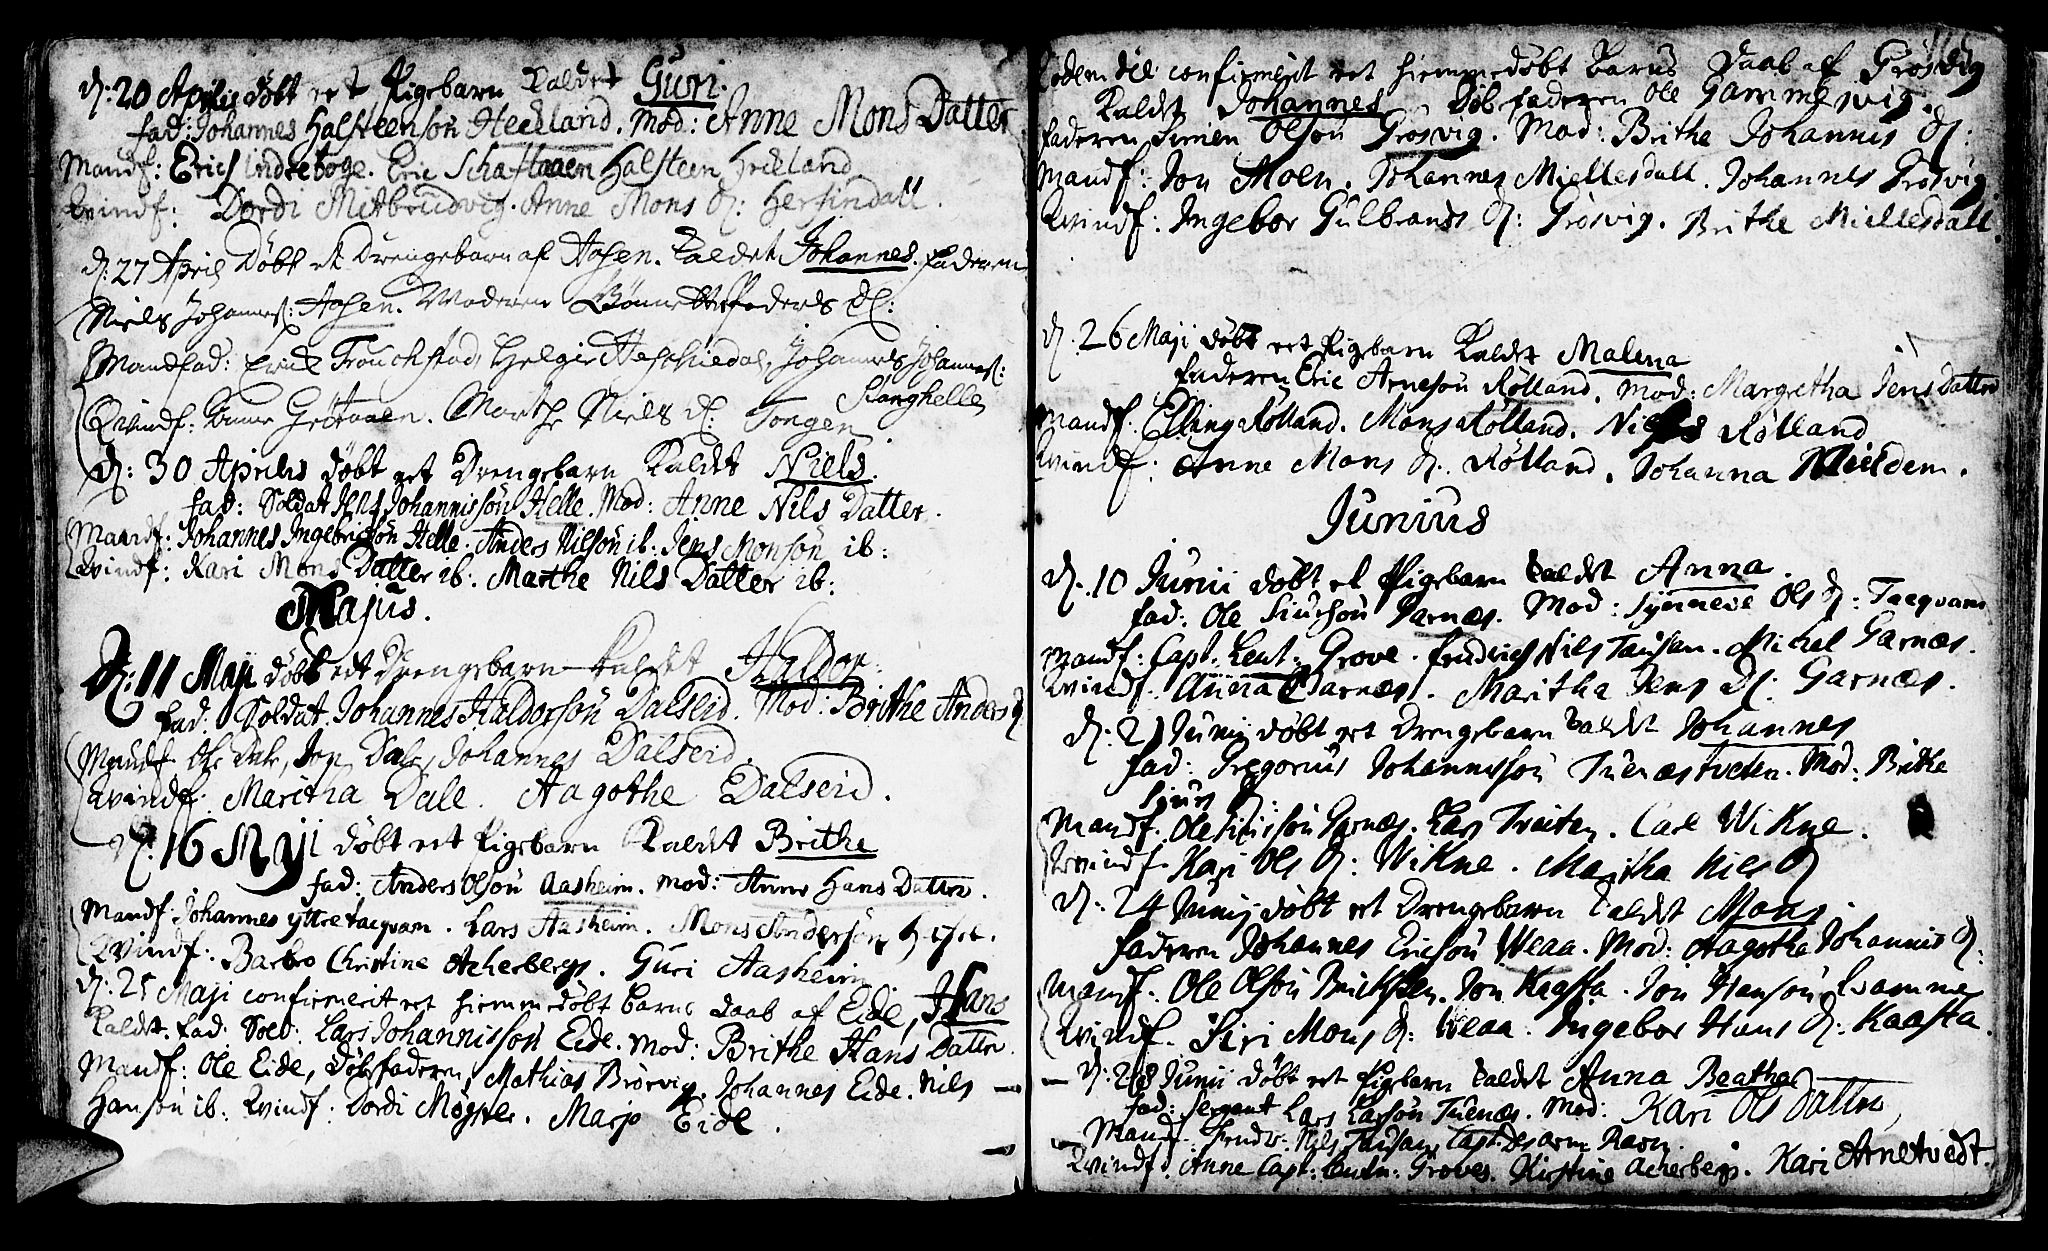 d: 20 Aprilis døbt eet Pigebarn Kaldet Guri.
fad: Johannes Halsteensøn Heedland. Mod: Anne Mons Datter
Mandf: Erich Indrebøge. Eric Schaftaaen Halsteen Heedland
Kvindf: Dordi Mitbrudvig. Anne Mons d: Herfindall.
d: 27 April Døbt et Drengebarn af Aasen. Kaldet Johannes. Faderen
Niels Johannes: Aasen. Moderen d:
Mandfad: Helgie Johannes Johannes:
Stanghelle
Qvindf: Marthe Niels d: Tongen
d: 30 Aprilis døbt eet Drengebarn Kaldet Niels.
fad: Soldat Jens Johannissøn Helle. Mod: Anne Nils Datter.
Mandf: Johannes Ingebrictsøn Helle. Anders Nilsøn ib: Jens Monsøn ib:
Kvindf: Kari Mons Datter ib: Marthe Nils Datter ib:
Majus.
d: 11 Maji døbt eet Drengebarn Kaldet Haldor.
fad: Soldat Johannes Haldorsøn Dalseid. Mod: Brithe Anders d
Mandf. Ole Dale, Jon Dale, Johannes Dalseid.
Kvindf: Maritha Dale. Aagothe Dalseid.
d: 16 Maji døbt eet Pigebarn Kaldet Brithe
fad: Anders Olsøn Aasheim. Mod: Anne Hans Datter.
Mandf: Johannes yttre tacqvam. Lars Aasheim. Mons Andersøn
Kvindf: Barbro Christine Acherbergs. Guri Aasheim
d: 25 Maji confirmerit eet hiemmedøbt barns daab af Eide, Hans
Kaldet. fad: Sold: Lars Johannissøn Eide. Mod: Brithe Hans Datter.
Mandf: Ole Eide, døbefaderen, Mathias Brørvig. Johannes Eide. Nils
Hansøn ib: Kvindf: Dordi Møgster. Marjo Eide.
Eodem die confirmerit eet hiemmedøbt barns daab af Grøsvig
Kaldt Johannes, døbefaderen Ole Gammersvig.
faderen Simen Olsøn Grøsvig. Mod: Brithe Johannis d:
Mandf: Jon Moen. Johannes Miellesdall. Johannes Grøsvig
Kvindf: Ingebor Gulbrands d: Grøsvig. Brithe Miellesdall.
d. 26 Maji døbt eet Pigebarn Kaldet Malena
faderen Eric Arnesøn Røland. Mod: Margretha Jens Datter
Mandf. Elling Rølland. Mons Rølland. Niels Rølland
Kvindf: Anne Mons d. Rølland. Johanna
Junius
d. 10 Junii døbt et Pigebarn kaldet Anna.
fad: Ole Siursøn Garnæs. Mod: Synneve Ols d: Tacqvam
Mandf: Capt: Leut: Grove. Fredrich Nils Tausan. Michel Garnæs.
Kvindf. Anna Garnæs. Maritha Jens d: Garnæs.
d: 21 Junij døbt eet Drengebarn kaldet Johannes
fad: Gregorius Johannissøn Tuenæstveten. Mod: Brithe
Siurs d:
Mandf. Ole Siursøn Garnæs. Lars Treiten. Carl WiKne.
Kvindf. Kari Ols d: WiKne. Maritha Nils d
d: 24 Junij døbt eet Drengebarn kaldet Mons.
faderen Johannes Ericsøn Weaa. Mod: Aagotha Johannis d:
Mandf. Ole Olsøn. Jon Kaasta. Jon Hansøn Qvamme
Kvindf. Siri Mons d: Weaa. Ingebor Hans d: Kaasta.
d: 28 Junii døbt eet Pigebarn kaldet Anna Beatha
fad: Sergeant Lars Larsøn Tuenæs. Mod: Kari Ols datter
Mandf. Fredr: Nils Tausan, Capt: Desarm Ravn.
Kvindf: Anne Capt: Leutn: Groves. Kirstine Acherbergs. Kari Arnetvedt.